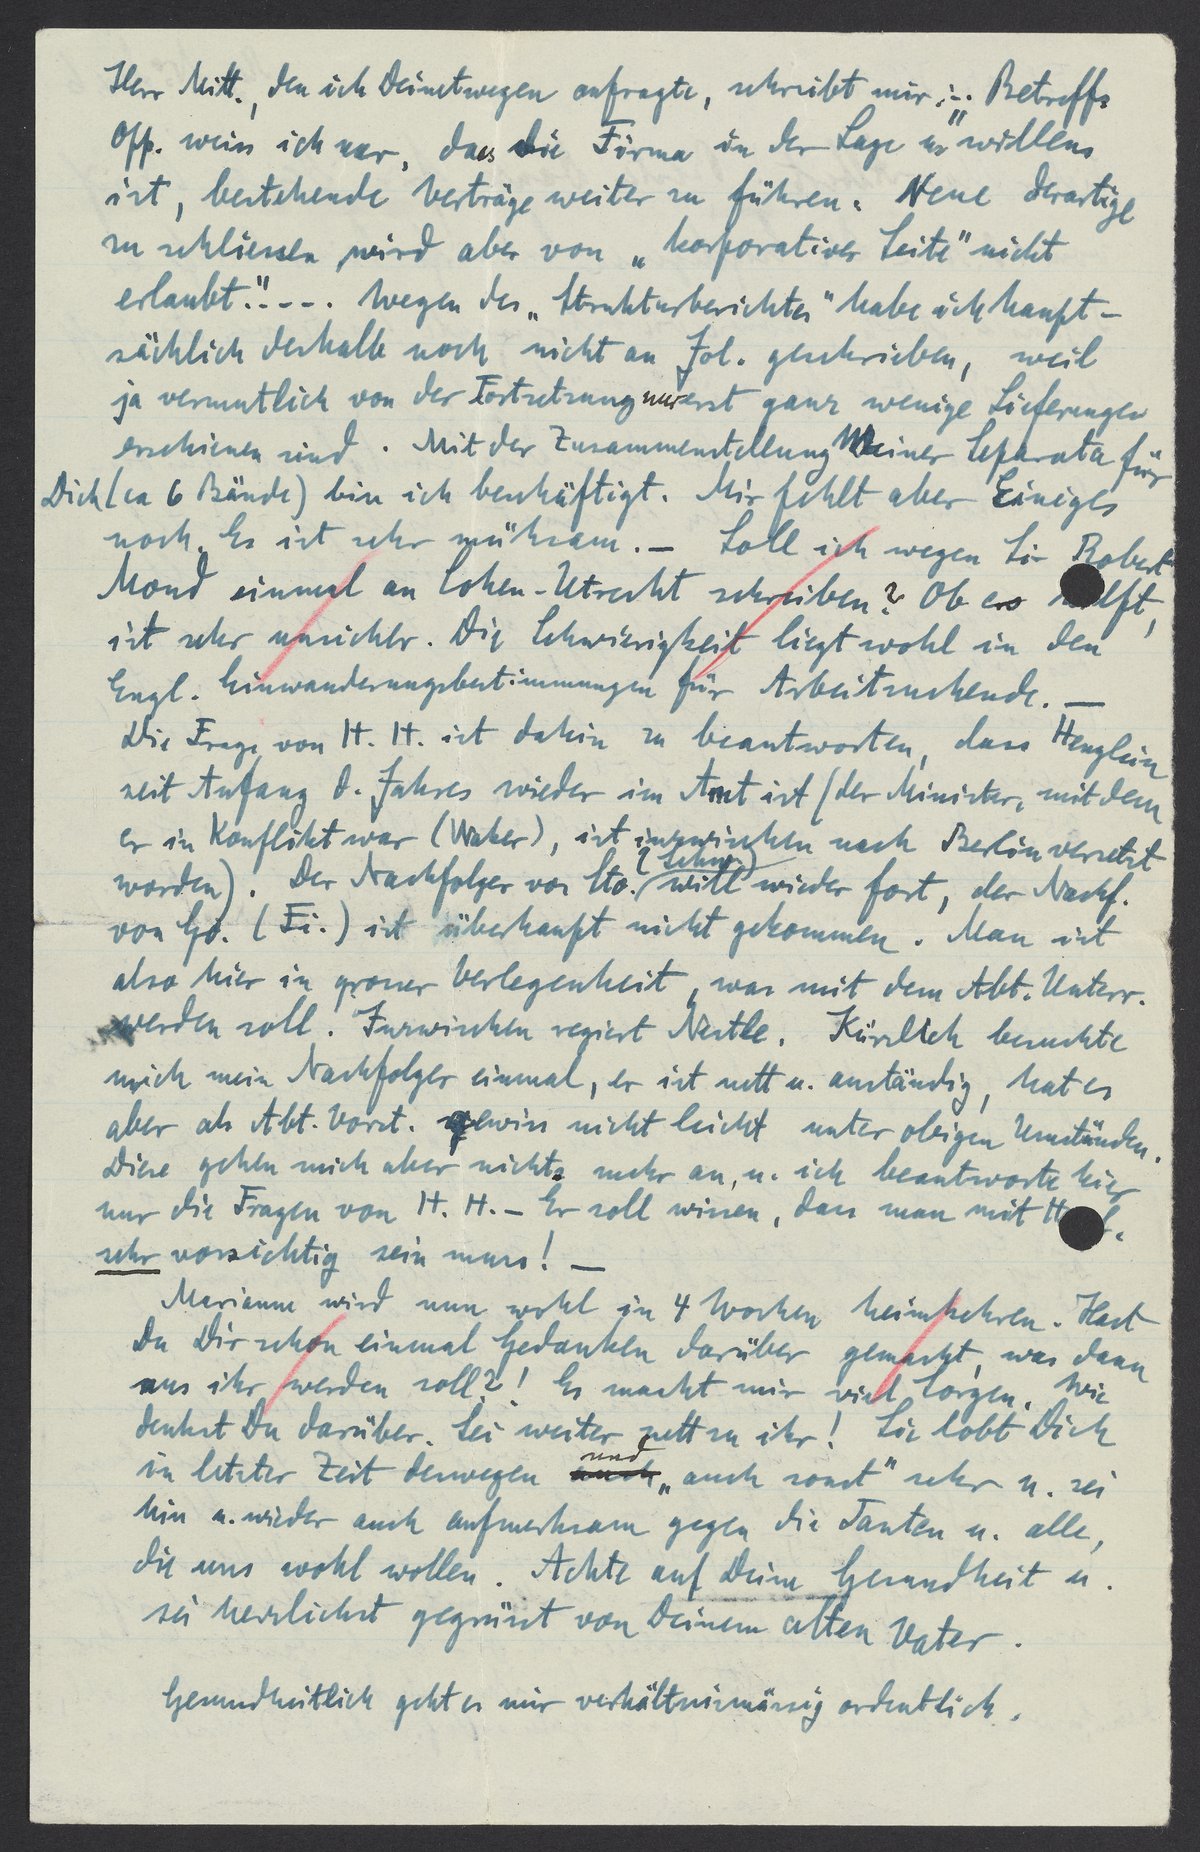 Herr Mitt., den ich Deinetwegen anfragte, schreibt mir: „.. Betreffs
Opp. weiss ich nur, dass die Firma in der Lage u. willens
ist, bestehende Verträge weiter zu führen. Neue derartige
zu schliessen wird aber von „korporativer Seite" nicht
erlaubt." - - - . Wegen des „Strukturberichtes" habe ich haupt-
sächlich deshalb noch nicht an Jol. geschrieben, weil
ja vermutlich von der Fortsetzung nur erst ganz wenige Lieferungen
erschienen sind. Mit der Zusammenstellung Meiner Separata für
Dich (ca 6 Bände) bin ich beschäftigt. Mir fehlt aber Einiges
noch. Es ist sehr mühsam. — Soll ich wegen Sir Robert
Mond einmal an Cohen-Utrecht schreiben? Ob es hilft,
ist sehr unsicher. Die Schwierigkeit liegt wohl in den
Engl. Einwanderungsbestimmungen für Arbeitsuchende. —
Die Frage von H. H. ist dahin zu beantworten, dass Henglein
seit Anfang d. Jahres wieder im Amt ist (der Minister, mit dem
er in Konflikt war (Wacker), ist inzwischen nach Berlin versetzt
worden). Der Nachfolger von Sto. (Schm.) will wieder fort, der Nachf.
von Go. (Fi.) ist überhaupt nicht gekommen. Man ist
also hier in grosser Verlegenheit, was mit dem Abt. Unterr.
werden soll. Inzwischen regiert Nestle. Kürzlich besuchte
mich mein Nachfolger einmal, er ist nett u. anständig, hat es
aber als Abt. Vorst. gewiss nicht leicht unter obigen Umständen.
Diese gehen mich aber nichts mehr an, u. ich beantworte hier
nur die Fragen von H. H. — Er soll wissen, dass man mit
sehr vorsichtig sein muss! —
Marianne wird nun wohl in 4 Wochen heimkehren. Hast
Du Dir schon einmal Gedanken darüber gemacht, was dann
aus ihr werden soll?! Es macht mir viel Sorgen. Wie
denkst Du darüber. Sei weiter nett zu ihr! Sie lobt Dich
in letzter Zeit deswegen und „auch sonst" sehr u. sei
hin u. wieder auch aufmerksam gegen die Tanten u. alle,
die uns wohl wollen. Achte auf Deine Gesundheit u.
sei herzlichst gegrüsst von Deinem alten Vater.
Gesundheitlich geht es mir verhältnismässig ordentlich.